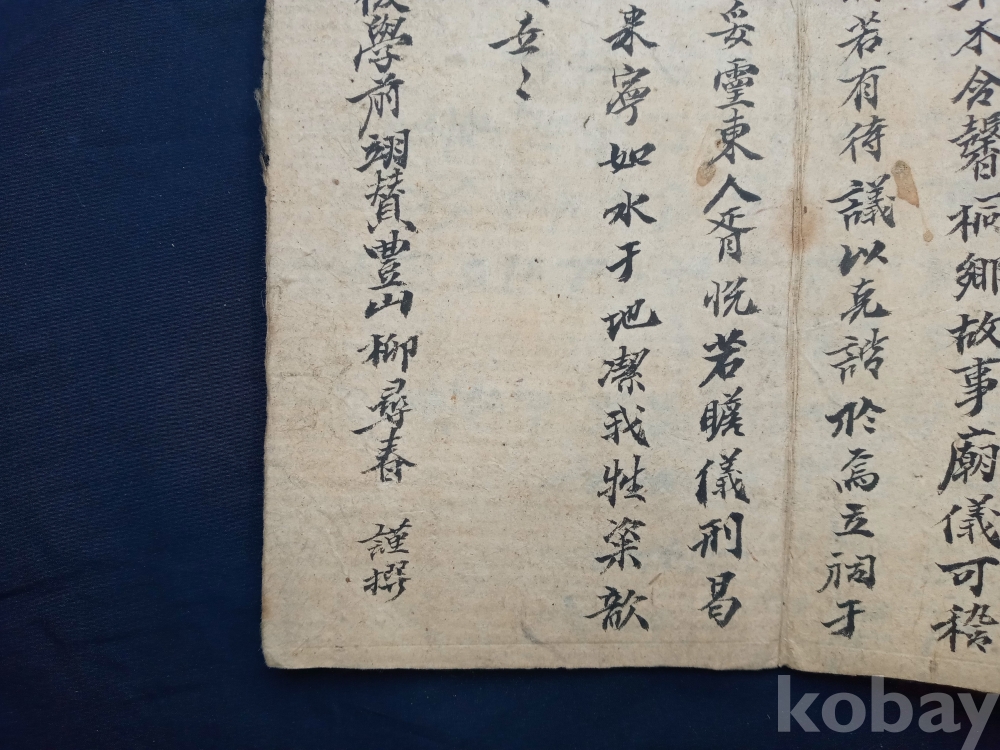 木含馨桐鄉故事廟儀可稽
若有待議以克諧於焉立祠于
妥靈東人胥悅若瞻儀刑曷
來寧如水于地潔我牲粢歆
學前翊贊豊山柳尋春 謹撰
kobay